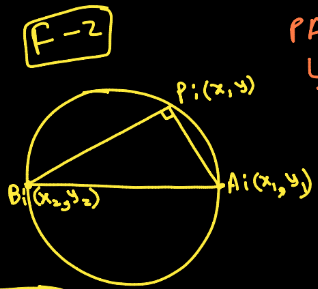 F-2
PA
P:(x,y)
B:(x₂,y₂)
A:(x₁,y₁)